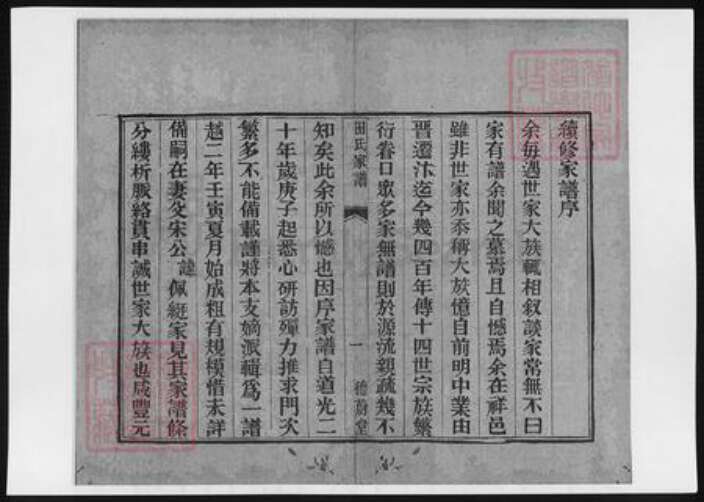 續修家譜序
余每遇世家大族輒相叙談家常無不曰
家有譜余聞之慕焉且自憾焉余在祥邑
雖非世家亦忝稱大族憶自前明中葉由
晋遷汴迄今幾四百年傳十四世宗族繁
衍眷口衆多家無譜則於源流親疏幾不
田氏家譜
一
德蔚堂
知矣此余所以憾也因序家譜自道光二
十年歲庚子起悉心研訪殫力推求門次
繁多不能備載謹將本支嫡派輯爲一譜
越二年壬寅夏月始成粗有規模惜未詳
備嗣在妻父宋公諱佩綎家見其家譜條
分縷析脈絡貫串誠世家大族也咸豐元